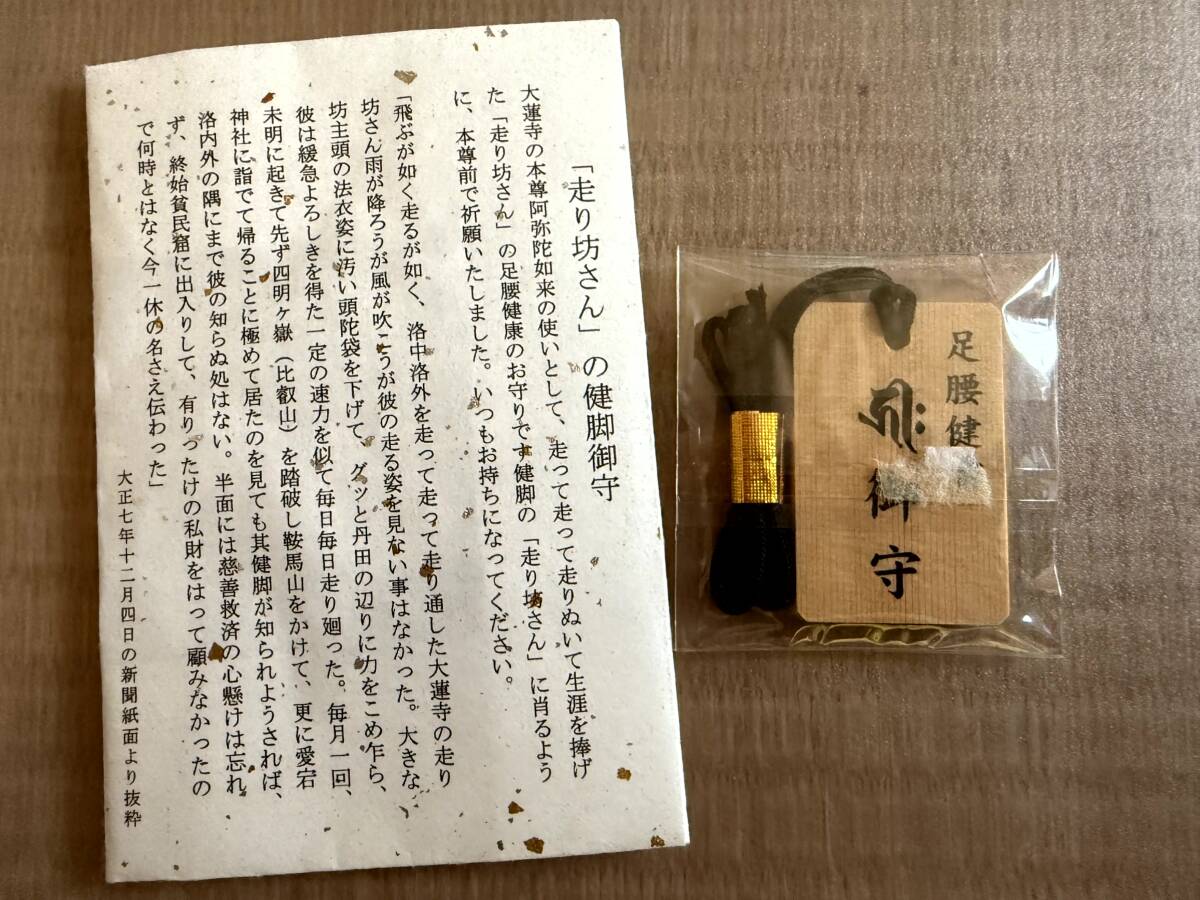 「走り坊さん」の健脚御守
大蓮寺の本尊阿弥陀如来の使いとして、走って走って走りぬいて生涯を捧げ
た「走り坊さん」の足腰健康のお守りです健脚の「走り坊さん」に肖るよう
に、本尊前で祈願いたしました。いつもお持ちになってください。
「飛ぶが如く走るが如く、洛中洛外を走って走って走り通した大蓮寺の走り
坊さん雨が降ろうが風が吹こうが彼の走る姿を見ない事はなかった。大きな
坊主頭の法衣姿に汚い頭陀袋を下げて、グッと丹田の辺りに力をこめ乍ら、
彼は緩急よろしきを得た一定の速力を似て毎日毎日走り廻った。毎月一回、
未明に起きて先ず四明ヶ嶽（比叡山）を踏破し鞍馬山をかけて、更に愛宕
神社に詣でて帰ることに極めて居たのを見ても其健脚が知られようされば、
洛内外の隅にまで彼の知らぬ処はない。半面には慈善救済の心懸けは忘れ
ず、終始貧民窟に出入りして、有りったけの私財をはって顧みなかったの
で何時とはなく今一休の名さえ伝わった」
大正七年十二月四日の新聞紙面より抜粋
足腰健
御守